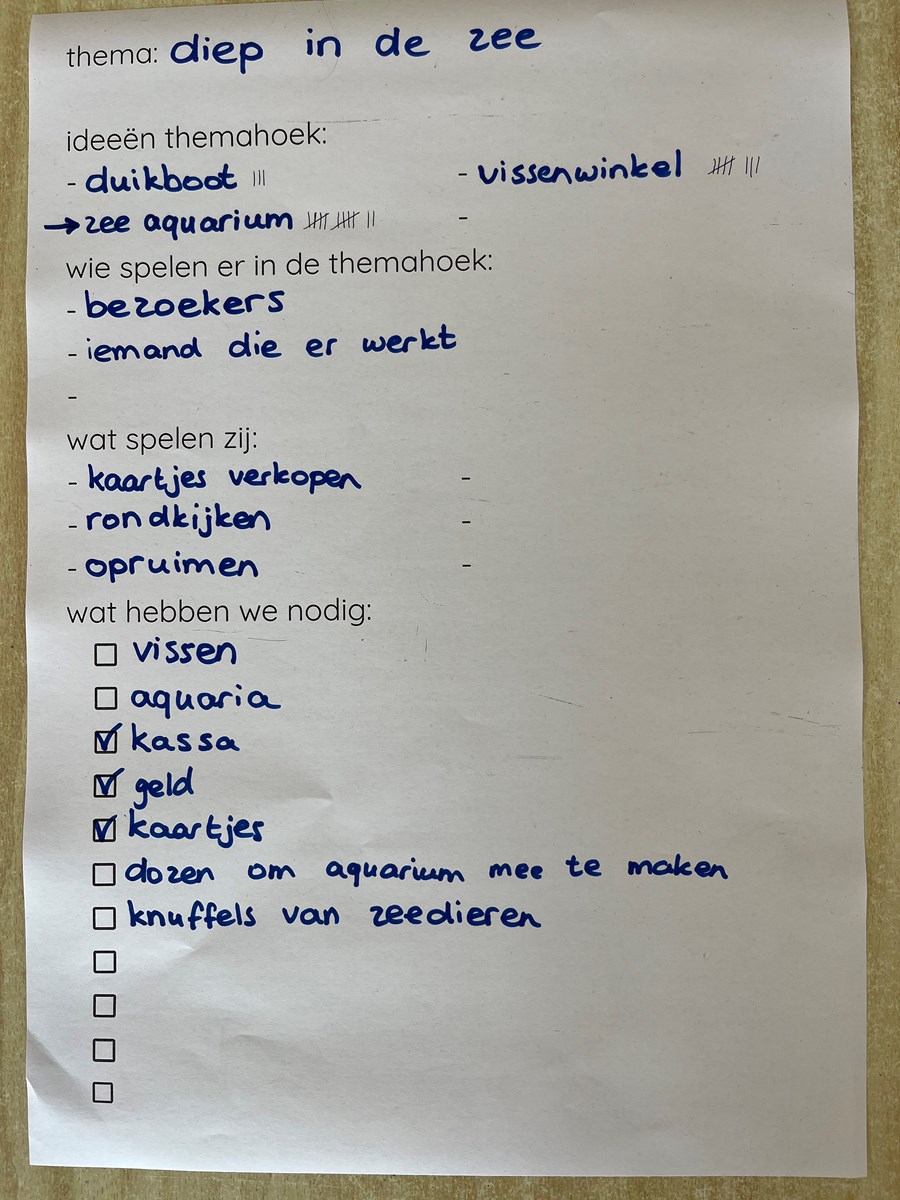 thema: diep in de zee
ideeën themahoek:
- duikboot ||| - vissenwinkel 卌 |||
→ zee aquarium 卌 卌 || -
wie spelen er in de themahoek:
- bezoekers
- iemand die er werkt
-
wat spelen zij:
- kaartjes verkopen -
- rondkijken -
- opruimen -
wat hebben we nodig:
☐ vissen
☐ aquaria
☑ kassa
☑ geld
☑ kaartjes
☐ dozen om aquarium mee te maken
☐ knuffels van zeedieren
☐
☐
☐
☐